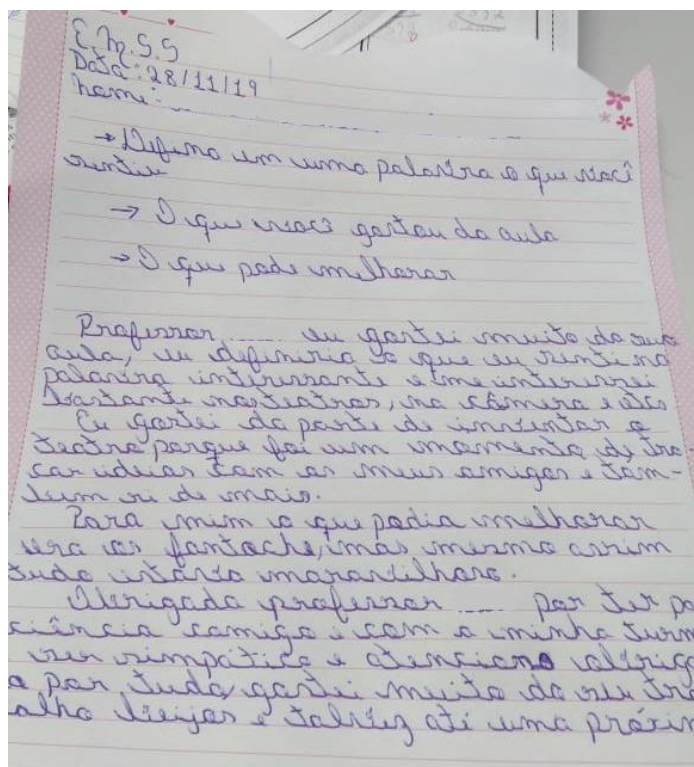 E.M.S.S
Data: 28/11/19
Nome:
→ Defina em uma palavra o que você
sentiu
→ O que você gostou da aula
→ O que pode melhorar
Professor ..... eu gostei muito da sua
aula, eu definiria o que eu senti na
palavra interessante e me interessei
bastante nos teatros, na câmera e etc
Eu gostei da parte de inventar o
teatro porque foi um momento de tro-
car ideias com os meus amigos e tam-
bem ri de mais.
Para mim o que podia melhorar
era os fantoche, mas mesmo assim
tudo estava maravilhoso.
Obrigada professor ..... por ter pa
ciência comigo e com a minha turm
ser simpático e atencioso obrigad
a por tudo, gostei muito do seu tra
alho beijos e talvez até uma próxim